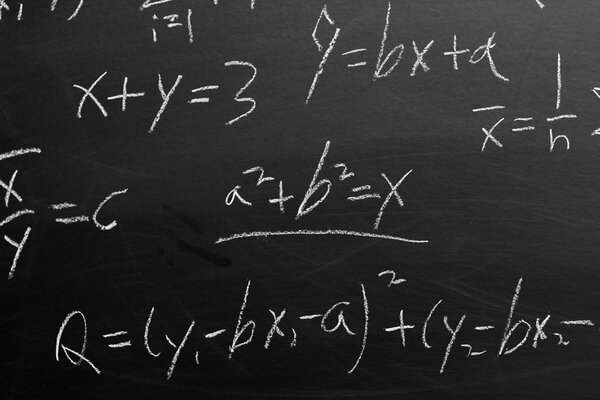 i=1
ŷ=bx+a
x+y=3
x̄=1/n
x/y=c
a²+b²=x
Q=(y₁-bx₁-a)²+(y₂-bx₂-